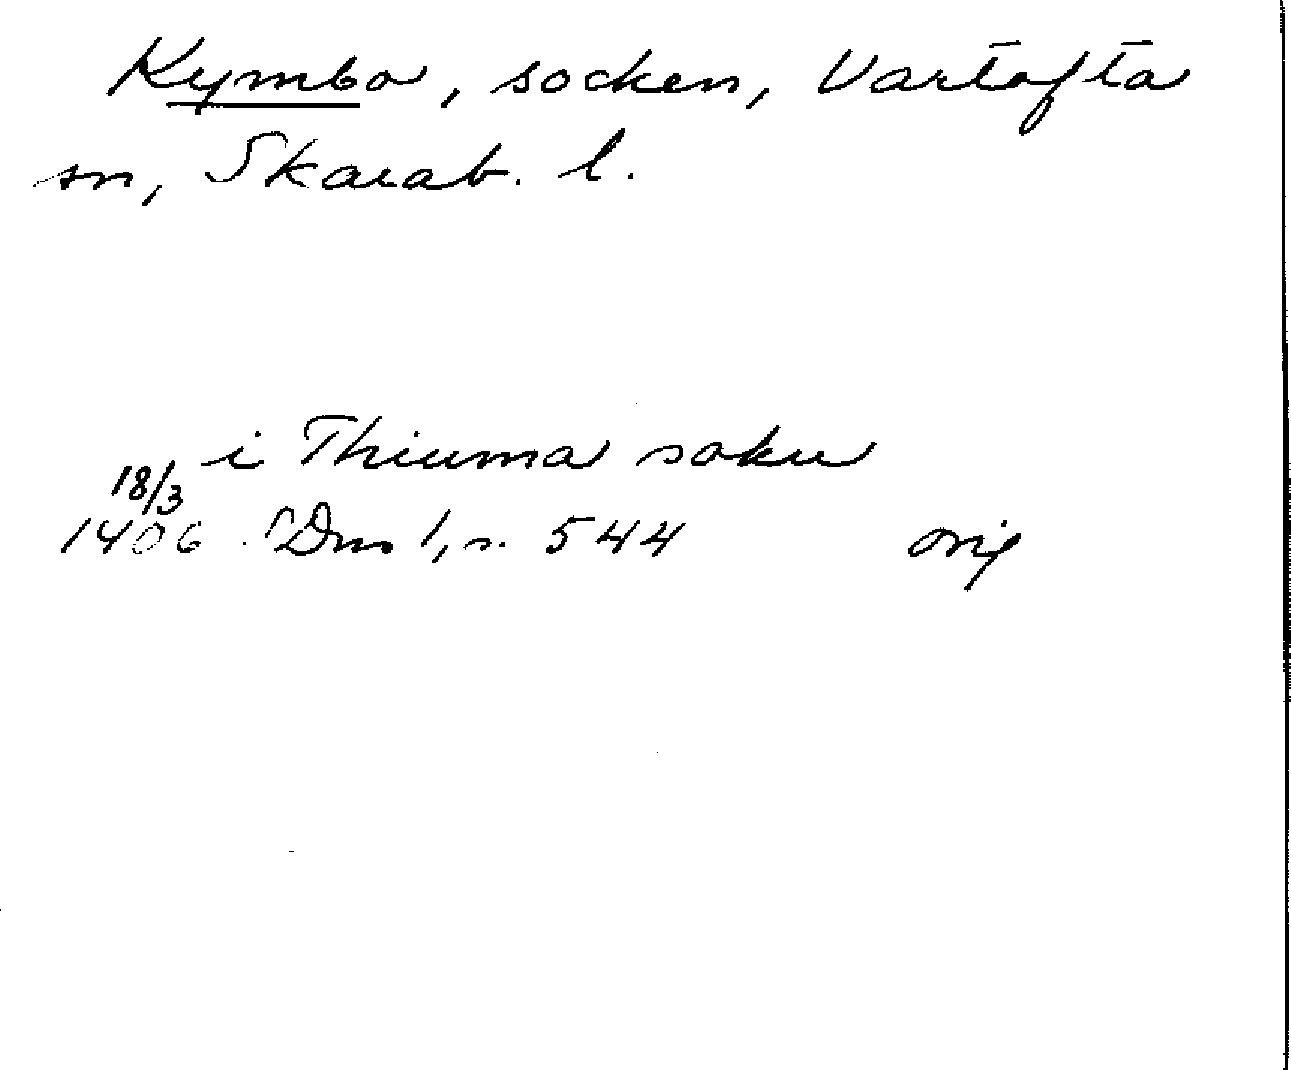 Kymbo, socken, Vartofta
sn, Skarab. l.
i Thiuma soku
18/3
1406 SDns 1, s. 544 orig